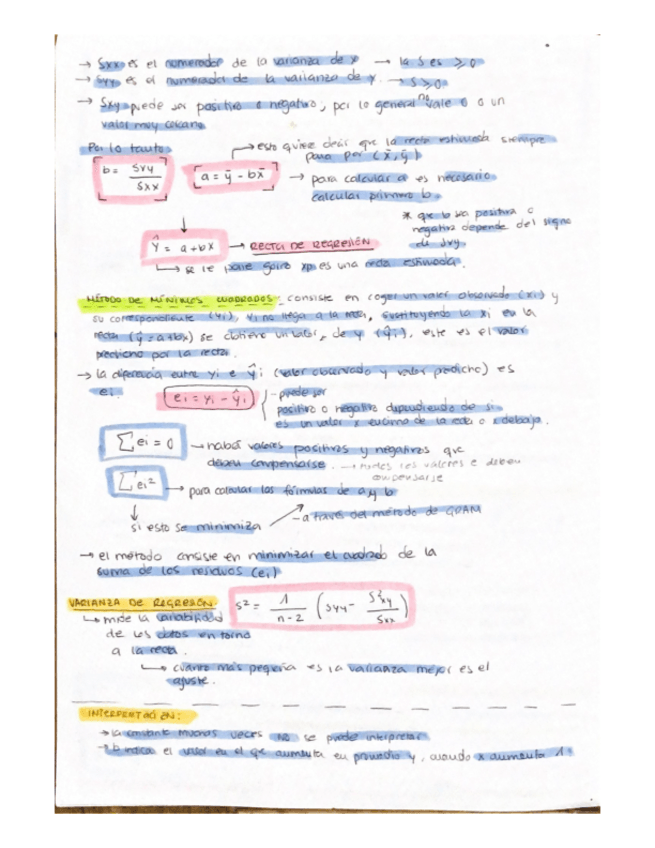 → Sxx es el numerador de la varianza de x → la S es ≥ 0
→ Syy es el numerador de la varianza de y. → S ≥ 0
→ Sxy puede ser positivo o negativo, por lo general no vale 0 o un
valor muy cercano
Por lo tanto
→ esto quiere decir que la recta estimada siempre
pasa por (x̄, ȳ)
[b = Sxy / Sxx] [a = ȳ - bx̄] → para calcular a es necesario
calcular primero b.
* que b sea positiva o
negativa depende del signo
de Sxy.
Ŷ = a + bx → RECTA DE REGRESIÓN
se le pone gorro xp es una recta estimada.
MÉTODO DE MÍNIMOS CUADRADOS: consiste en coger un valor observado (xi) y
su correspondiente (yi), yi no llega a la recta, sustituyendo la xi en la
recta (ŷ = a+bx) se obtiene un valor, de y (ŷi), este es el valor
predicho por la recta.
→ la diferencia entre yi e ŷi (valor observado y valor predicho) es
ei.
ei = yi - ŷi
- puede ser
positivo o negativo dependiendo de si
es un valor x encima de la recta o x debajo.
∑ei = 0 → habrá valores positivos y negativos que
deben compensarse. → valores e deben
compensarse
∑ei² → para calcular las fórmulas de a y b
↓
si esto se minimiza
- a través del método de
→ el método consiste en minimizar el cuadrado de la
suma de los residuos (ei)
VARIANZA DE REGRESIÓN: s² = 1 / n-2 (Syy - S²xy / Sxx)
mide la variabilidad
de los datos en torno
a la recta.
cuanto más pequeña es la varianza mejor es el
ajuste.
INTERPRETACIÓN:
→ la constante muchas veces no se puede interpretar
→ b indica el valor en el que aumenta en promedio y, cuando x aumenta 1